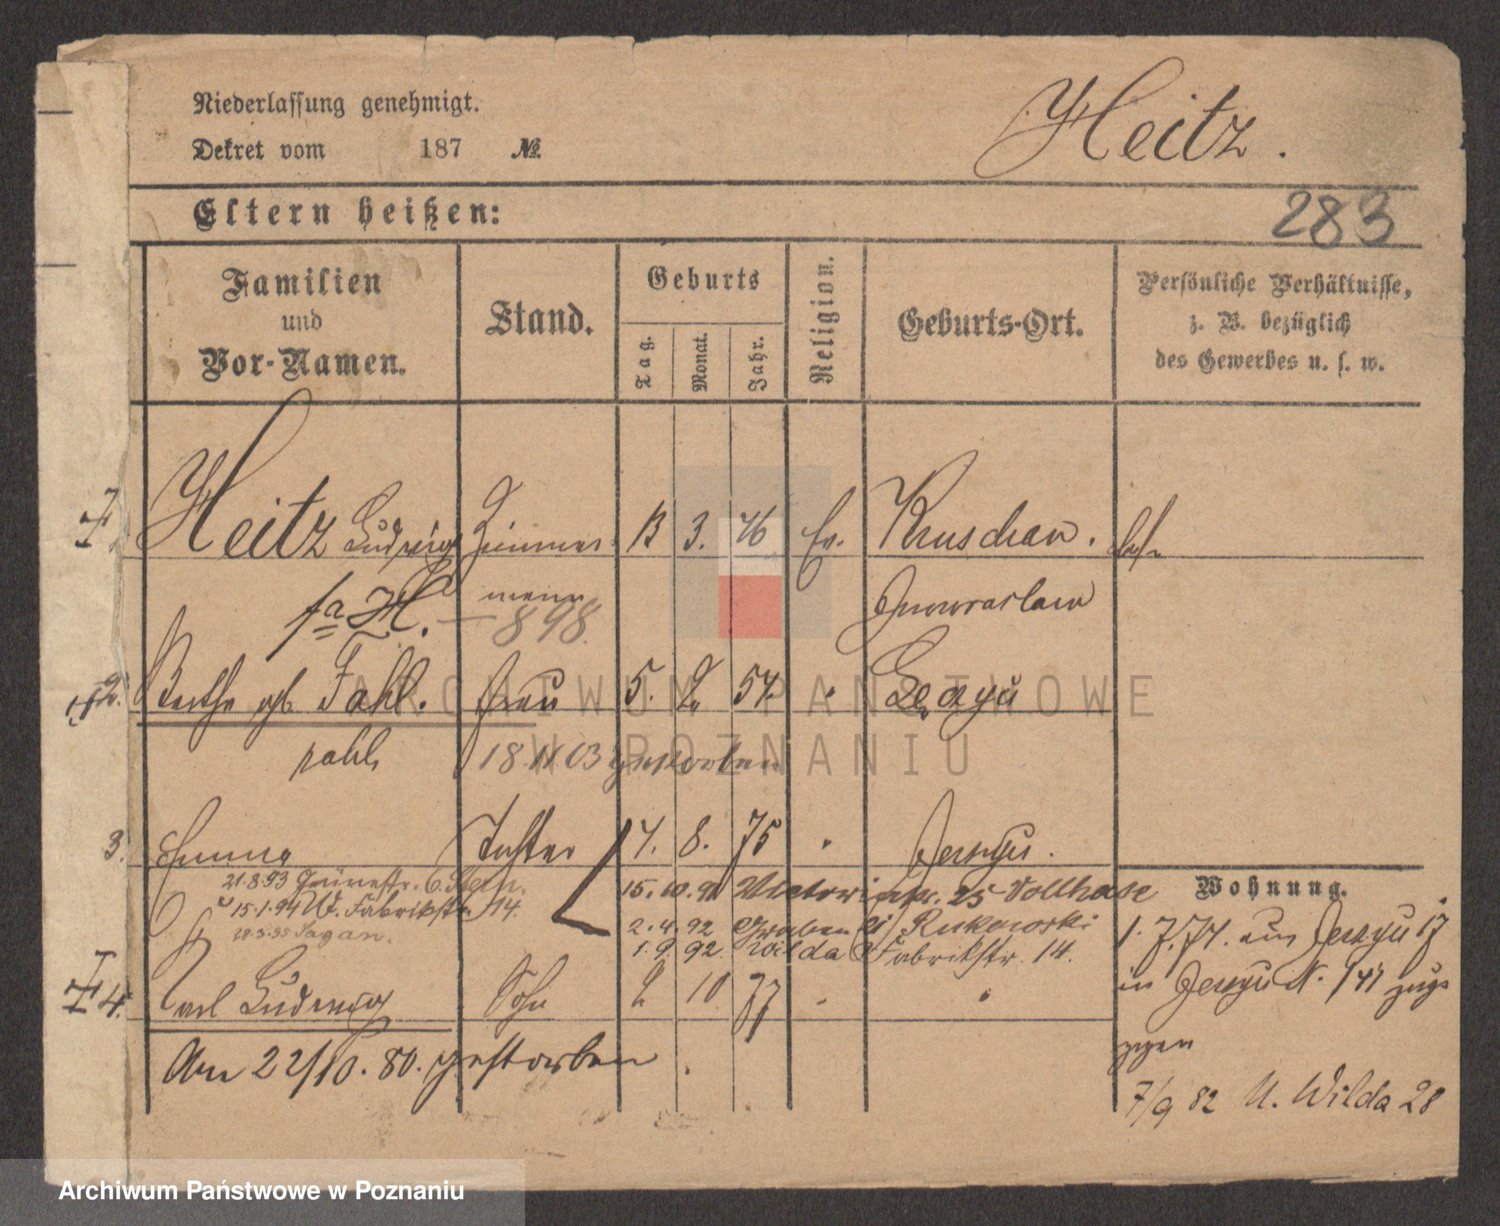 Niederlassung genehmigt.
Dekret vom 187 №
Heitz.
Eltern heißen:
283
Familien
und
Vor-Namen.
Stand.
Geburts
Tag.
Monat.
Jahr.
Religion.
Geburts-Ort.
Persönliche Verhältnisse,
z. B. bezüglich
des Gewerbes u. s. w.
Heitz Ludwig Zimmer- 13 3. 46 Ev. Kruschau.
mann Inowraclaw
898.
2. Bertha geb. Fahl. Frau 5. 2. 54
18 11 03 gestorben
3. Emma Tochter 4. 8. 75 " Jerzyce.
21.8.93
15.1.94 W. Fabrikstr. 14.
28.3.95 Sagan.
15.10.91 Victoriastr. 25 Vollhase
2.4.92 Graben Rukowski
1.9.92 Wilda Fabrikstr. 14.
Wohnung.
4. Carl Ludwig Sohn 2 10 77 " "
Am 22/10. 80. gestorben.
1.7.77. aus Jerzyce 17
in Jerzyce N. 141 zuge
zogen
7/9 82 U. Wilda 28
ARCHIWUM PAŃSTWOWE
W POZNANIU
Archiwum Państwowe w Poznaniu